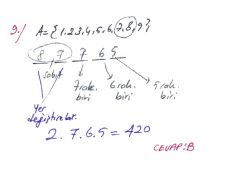 9./ A={1,2,3,4,5,6,7,8,9}
8 7 7 6 5
sabit
7 rak. biri
6 rak. biri
5 rak. biri
Yer değiştirebilir.
2.7.6.5=420
CEVAP:B